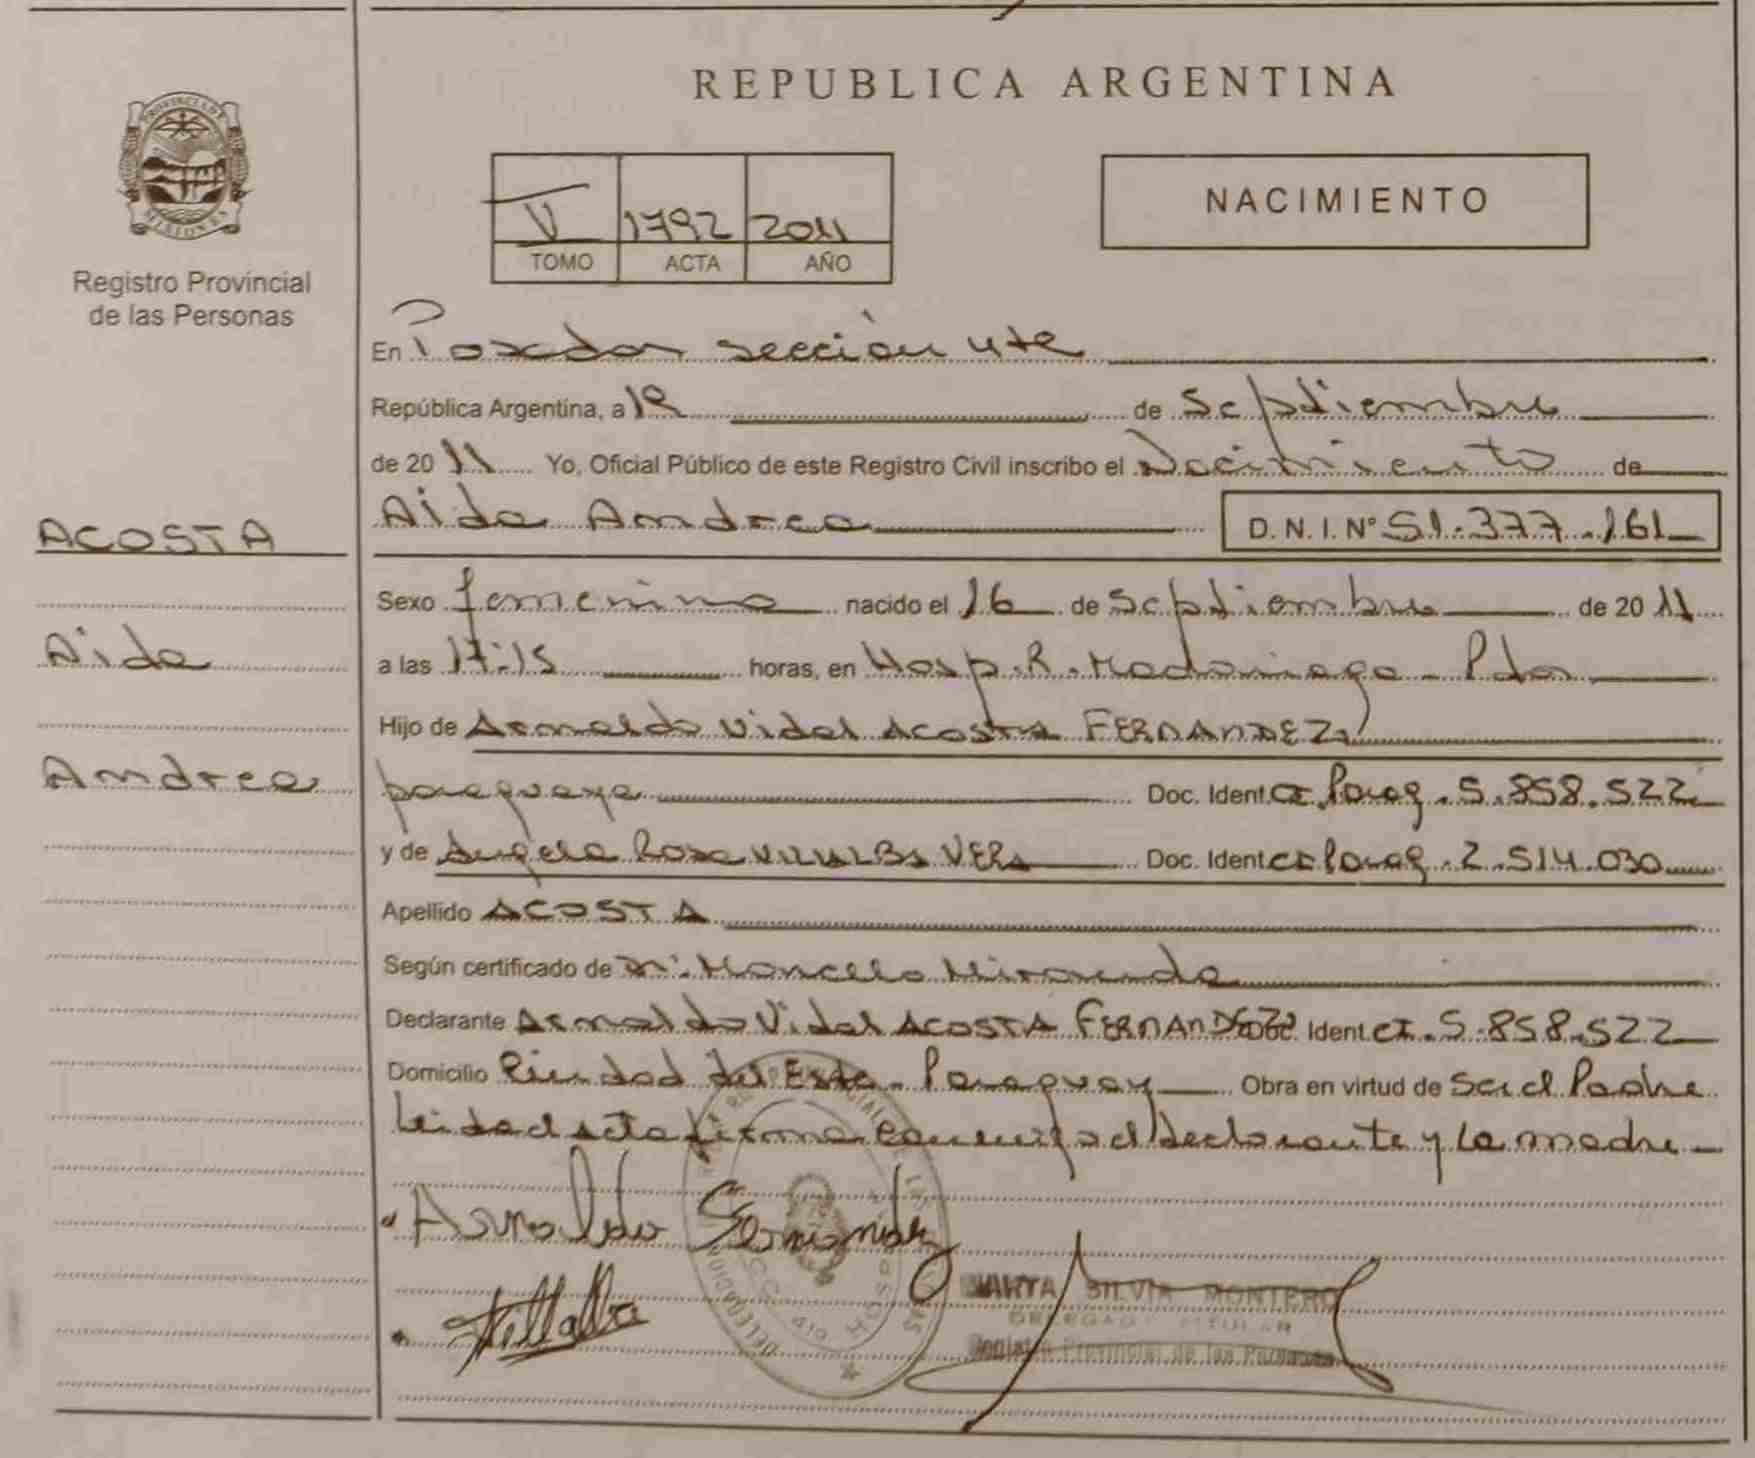 REPUBLICA ARGENTINA
PROVINCIA DE MISIONES
Registro Provincial
de las Personas
V 1792 2011
TOMO ACTA AÑO
NACIMIENTO
En Posadas sección 4te
República Argentina, a 19 de Septiembre
de 2011 Yo, Oficial Público de este Registro Civil inscribo el Nacimiento de
Aida Andrea D. N. I. Nº 51.377.161
ACOSTA
Aida
Andrea
Sexo femenino nacido el 16 de Septiembre de 2011
a las 17:15 horas, en Hosp. R. Madariaga - Pdas
Hijo de Arnaldo Vidal ACOSTA FERNANDEZ
paraguaya Doc. Ident. CI Parag. 5.858.522
y de Angela Rosa VILLALBA VERA Doc. Ident. CI Parag. 2.514.030
Apellido ACOSTA
Según certificado de Dr. Marcelo Miranda
Declarante Arnaldo Vidal ACOSTA FERNANDEZ Doc. Ident. CI. 5.858.522
Domicilio Ciudad del Este - Paraguay Obra en virtud de Ser el Padre
Leida el acta firma conmigo el declarante y la madre
Arnaldo Fernandez
Villalba
MARTA SILVIA MONTERO
DELEGADA TITULAR
Registro Provincial de las Personas